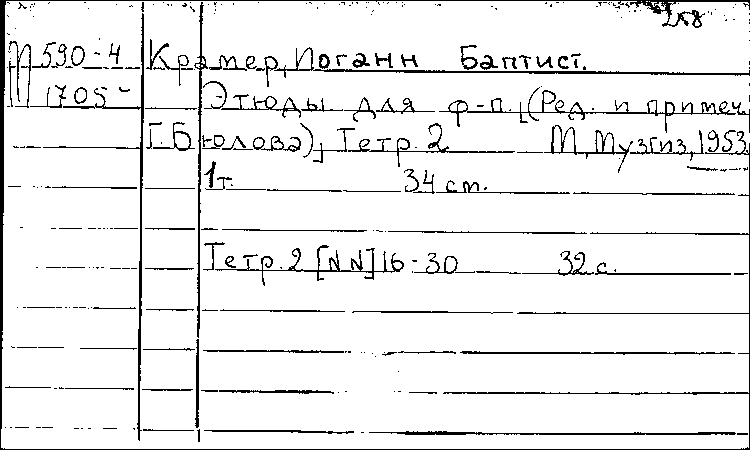 258
М 590-4 Крамер, Иоганн Баптист.
1705 Этюды для ф-п. (Ред. и примеч.
Г. Бюлова), Тетр. 2 М, Музгиз, 1953.
1т. 34 см.
Тетр. 2 [NN] 16-30 32 с.